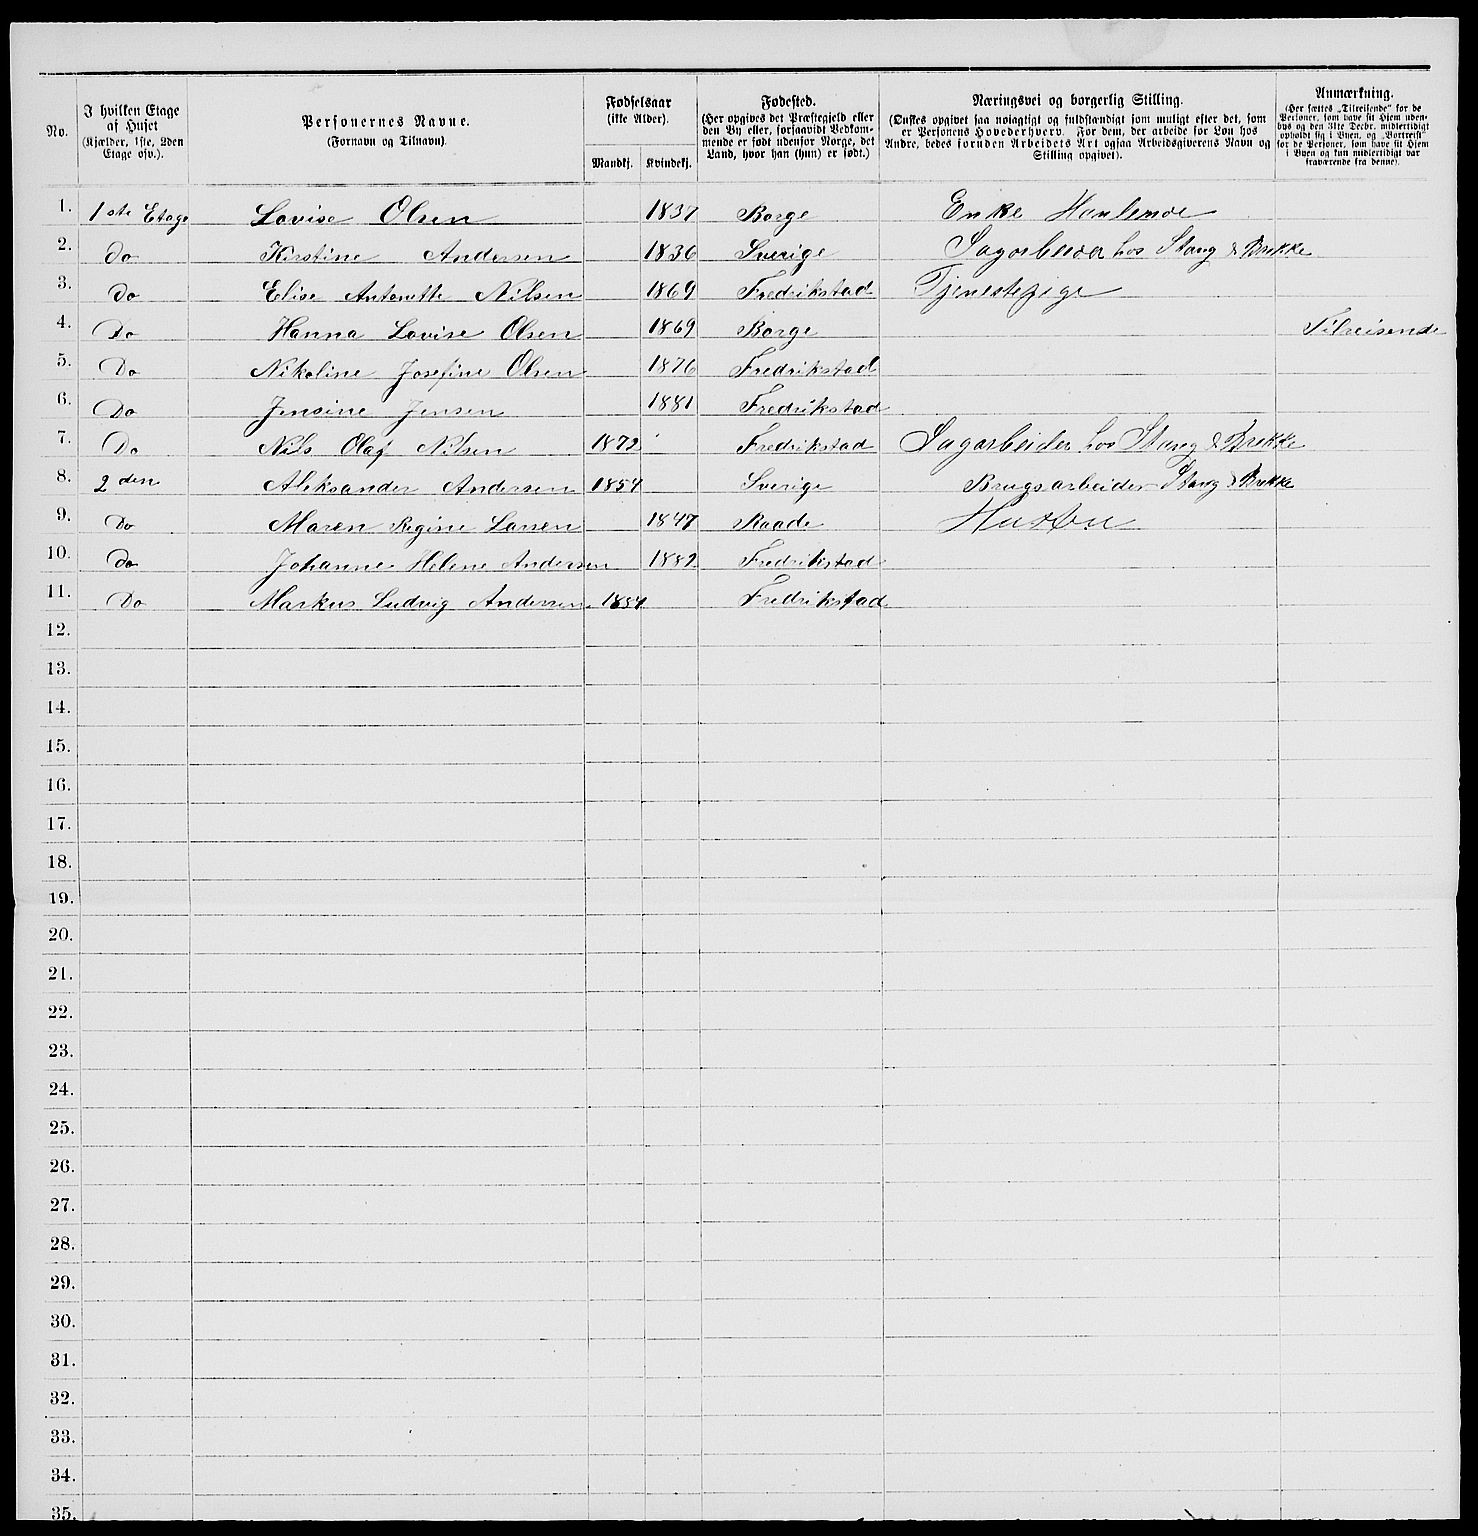 No.
I hvilken Etage
af Huset
(Kjælder, 1ste, 2den
Etage osv.).
Personernes Navne.
(Fornavn og Tilnavn).
Fødselsaar
(ikke Alder).
Mandkj.
Kvindekj.
Fødested.
(Her opgives det Præstegjeld eller
den By eller, forsaavidt Vedkom-
mende er født udenfor Norge, det
Land, hvor han (hun) er født.)
Næringsvei og borgerlig Stilling.
(Ønskes opgivet saa nøiagtigt og fuldstændigt som muligt efter det, som
er Personens Hovederhverv. For dem, der arbeide for Løn hos
Andre, bedes foruden Arbeidets Art ogsaa Arbeidsgiverens Navn og
Stilling opgivet).
Anmærkning.
(Her sættes „Tilreisende" for de
Personer, som have sit Hjem uden-
bys og den 31te Decbr. midlertidigt
opholdt sig i Byen, og „Bortreist"
for de Personer, som have sit Hjem
i Byen og kun midlertidigt var
fraværende fra denne).
1. 1ste Etage Lovise Olsen 1837 Borge Enke
2. Do Kirstine Andersen 1836 Sverige hos Stang & Brekke
3. Do Elise Antonette Nilsen 1869 Fredrikstad Tjenestepige
4. Do Hanna Lovise Olsen 1869 Borge Tilreisende
5. Do Nikoline Josefine Olsen 1876 Fredrikstad
6. Do Jensine Jensen 1881 Fredrikstad
7. Do Nils Olaf Nilsen 1872 Fredrikstad Sagarbeider hos Stang & Brekke
8. 2den Aleksander Andersen 1854 Sverige Brugsarbeider Stang & Brekke
9. Do Maren Regine Larsen 1847 Raade Hustru
10. Do Johanne Helene Andersen 1882 Fredrikstad
11. Do Markus Ludvig Andersen Fredrikstad
12.
13.
14.
15.
16.
17.
18.
19.
20.
21.
22.
23.
24.
25.
26.
27.
28.
29.
30.
31.
32.
33.
34.
35.